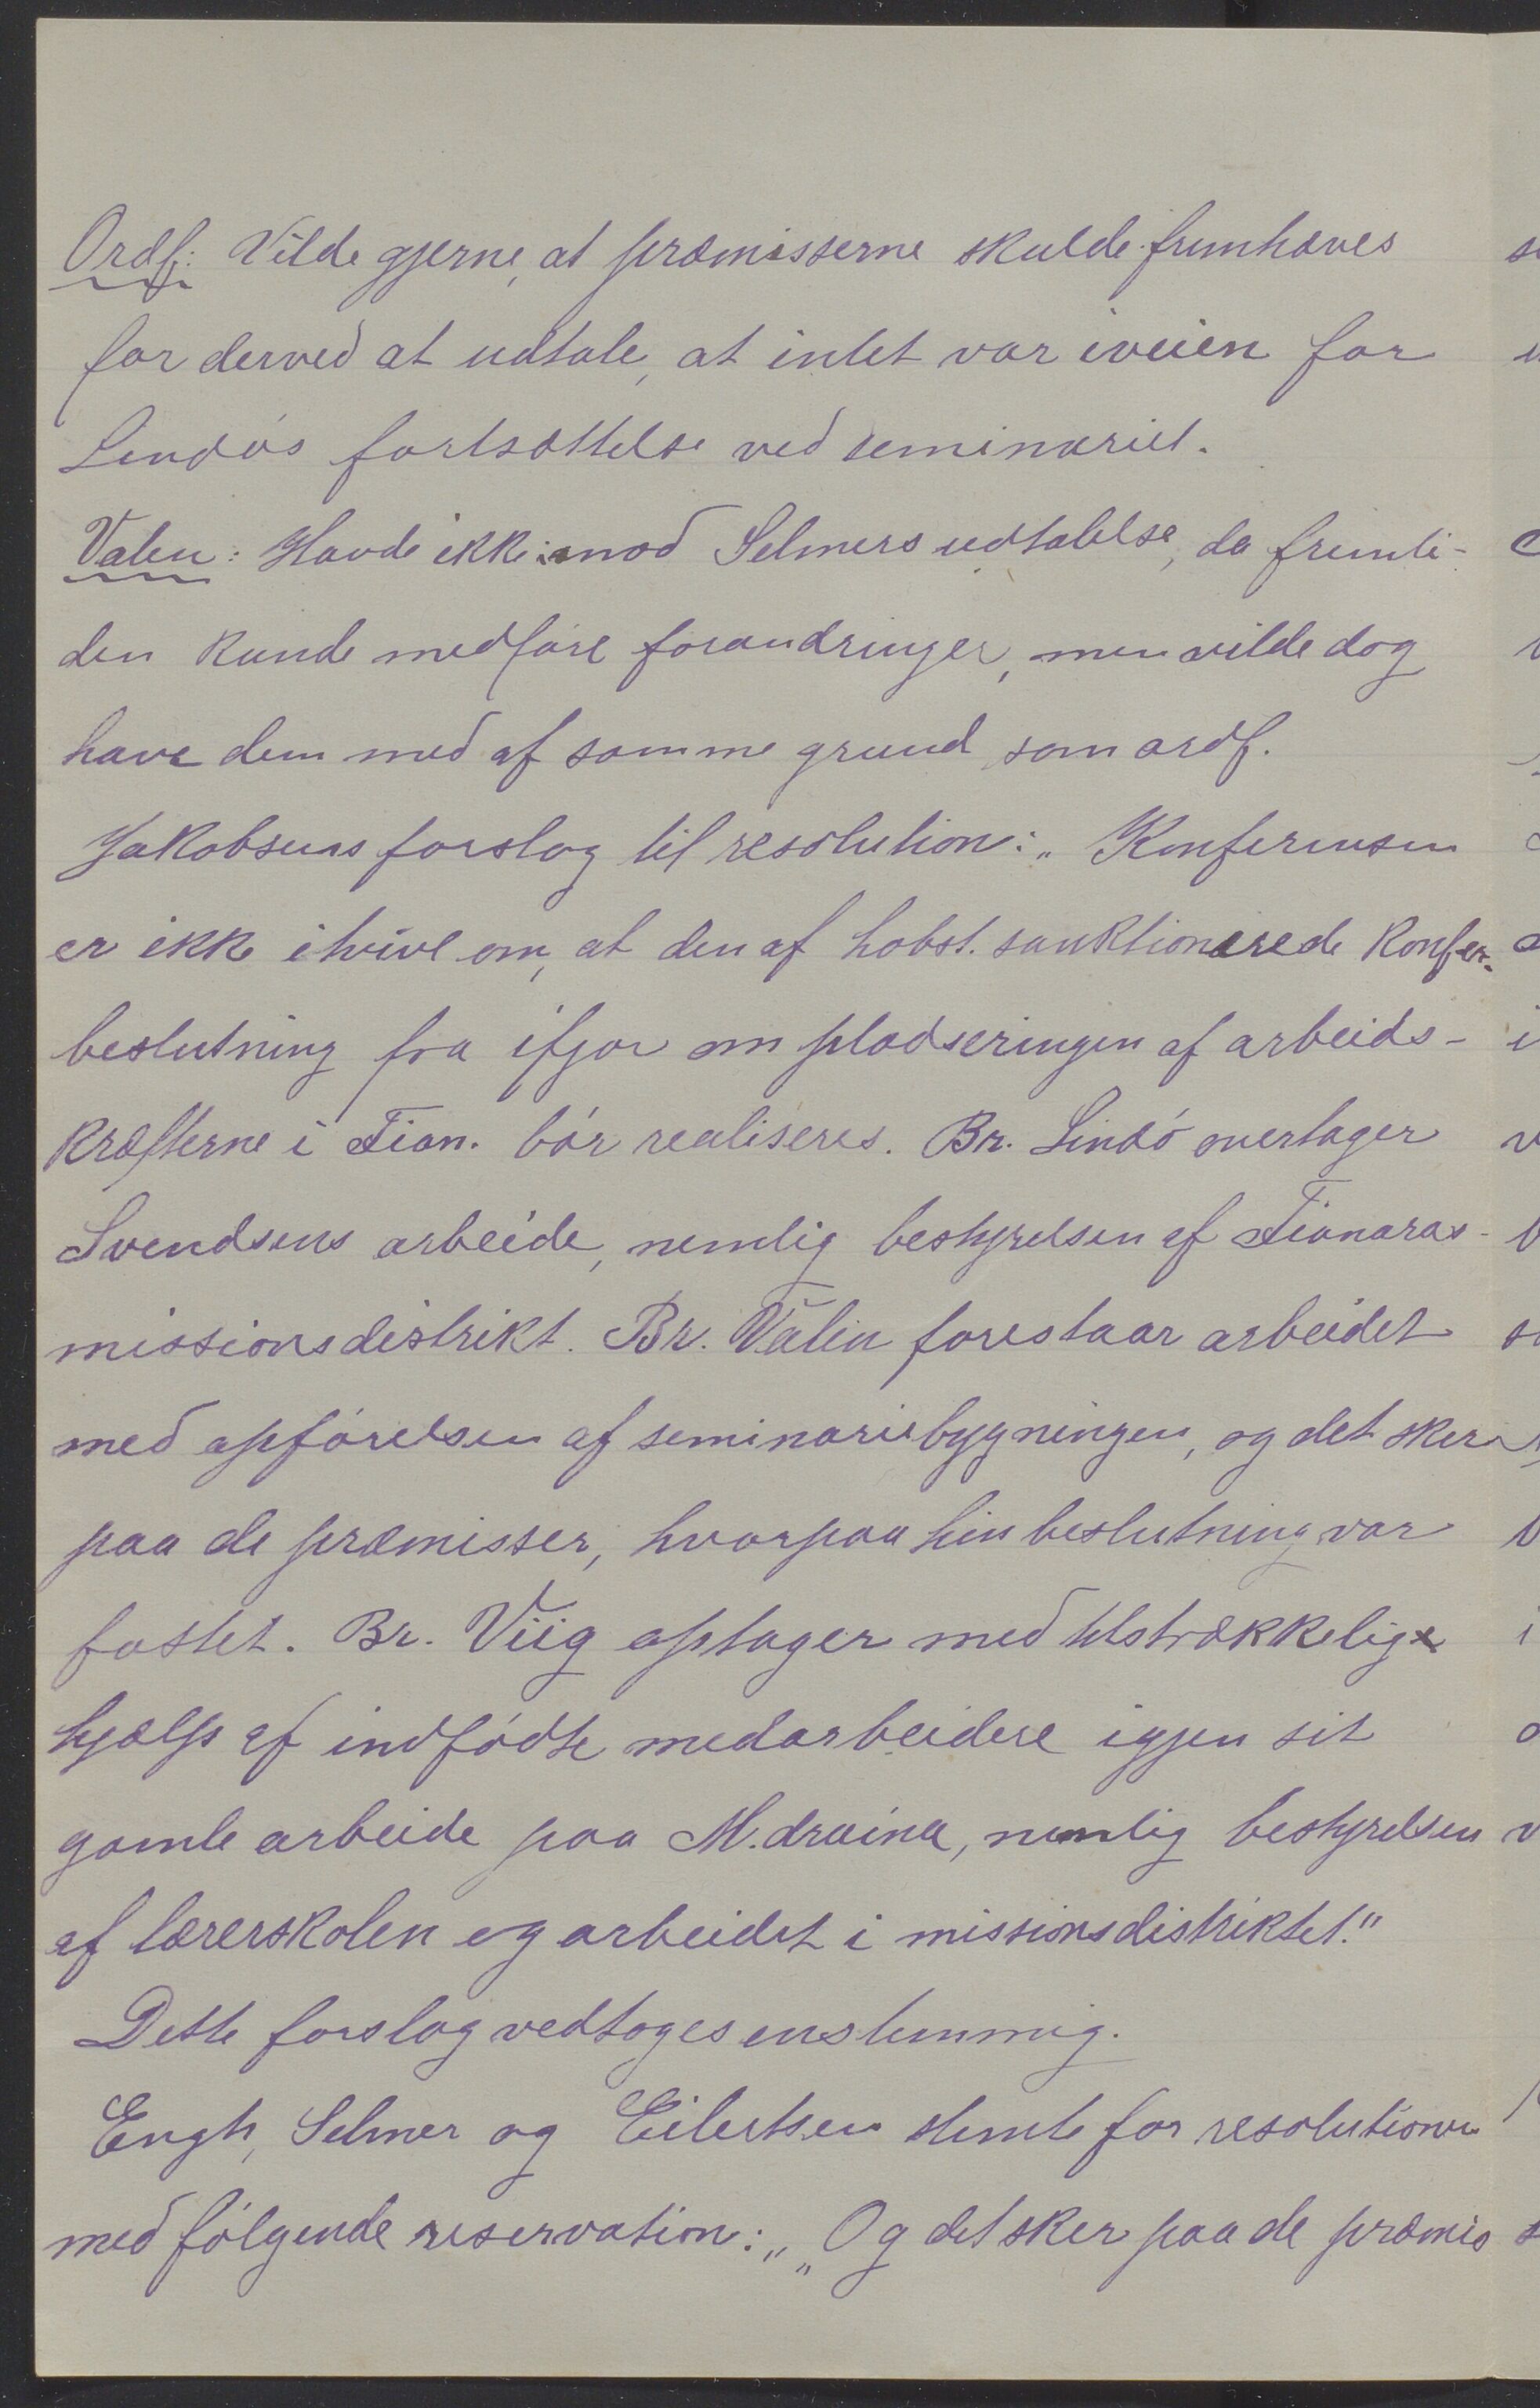 Ordf: Vilde gjerne, at præmisserne skulde fremhæves
for derved at udtale, at intet var iveien for
Lindös fortsættelse ved seminariet.
Valen: Havde ikke imod Selmers udtalelse, da fremti-
den kunde medføre forandringer, men vilde dog
have dem med af samme grund som ordf.
Jakobsens forslag til resolution: „Konferensen
er ikke itvivl om, at den af hobst. sanktionerede konfer.
beslutning fra ifjor om pladseringen af arbeids-
kræfterne i Fian. bör realiseres. Br. Lindö overtager
Svendsens arbeide, nemlig bestyrelsen af Fianaras-
missionsdistrikt. Br. Valen forestaar arbeidet
med opförelsen af seminariebygningen, og det sker
paa de præmisser, hvorpaa hin beslutning var
fattet. Br. Viig optager med tilstrækkelig
hjælp af indfödte medarbeidere igjen sit
gamle arbeide paa M.draina, nemlig bestyrelsen
af lærerskolen og arbeidet i missionsdistriktet."
Dette forslag vedtoges enstemmig.
Engh, Selmer og Eilertsen stemte for resolutionen
med fölgende reservation: „„Og det sker paa de præmis